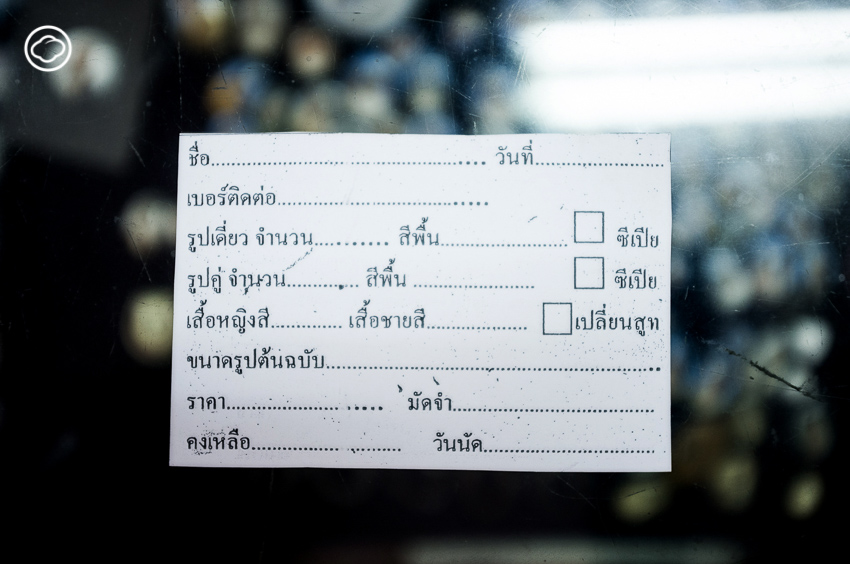 ชื่อ.......................................................... วันที่............................
เบอร์ติดต่อ................................................
รูปเดี่ยว จำนวน................ สีพื้น............................ ☐ ซีเปีย
รูปคู่ จำนวน................ สีพื้น ........................... ☐ ซีเปีย
เสื้อหญิงสี............... เสื้อชายสี..................... ☐ เปลี่ยนสูท
ขนาดรูปต้นฉบับ......................................................................
ราคา............................... มัดจำ...........................................
คงเหลือ................................ วันนัด....................................